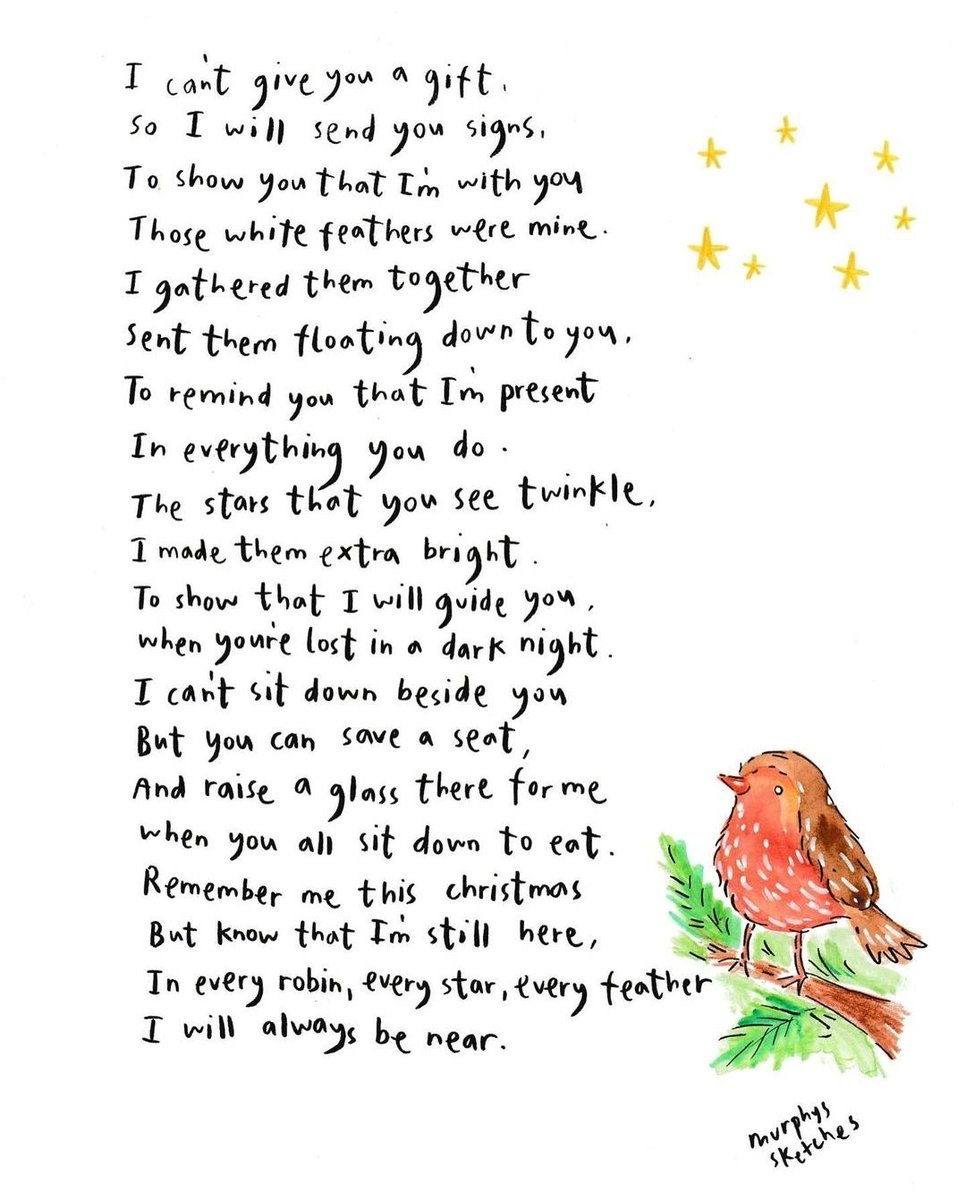 I can't give you a gift,
So I will send you signs,
To show you that I'm with you
Those white feathers were mine.
I gathered them together
Sent them floating down to you,
To remind you that I'm present
In everything you do.
The stars that you see twinkle,
I made them extra bright.
To show that I will guide you,
when you're lost in a dark night.
I can't sit down beside you
But you can save a seat,
And raise a glass there for me
when you all sit down to eat.
Remember me this christmas
But know that I'm still here,
In every robin, every star, every feather
I will always be near.
murphys
sketches